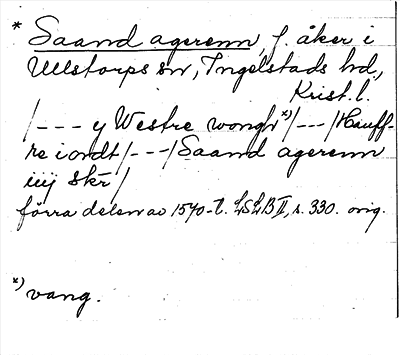 * Saand agerenn, f. åker i
Ullstorps sn, Ingelstads hd,
Krist. l.
/--- y Westre wongh *)/---/Hauff-
re iordt/---/Saand agerenn
iiij skr/
förra delen av 1570-t. LSLB II, s. 330. orig.
*) vang.